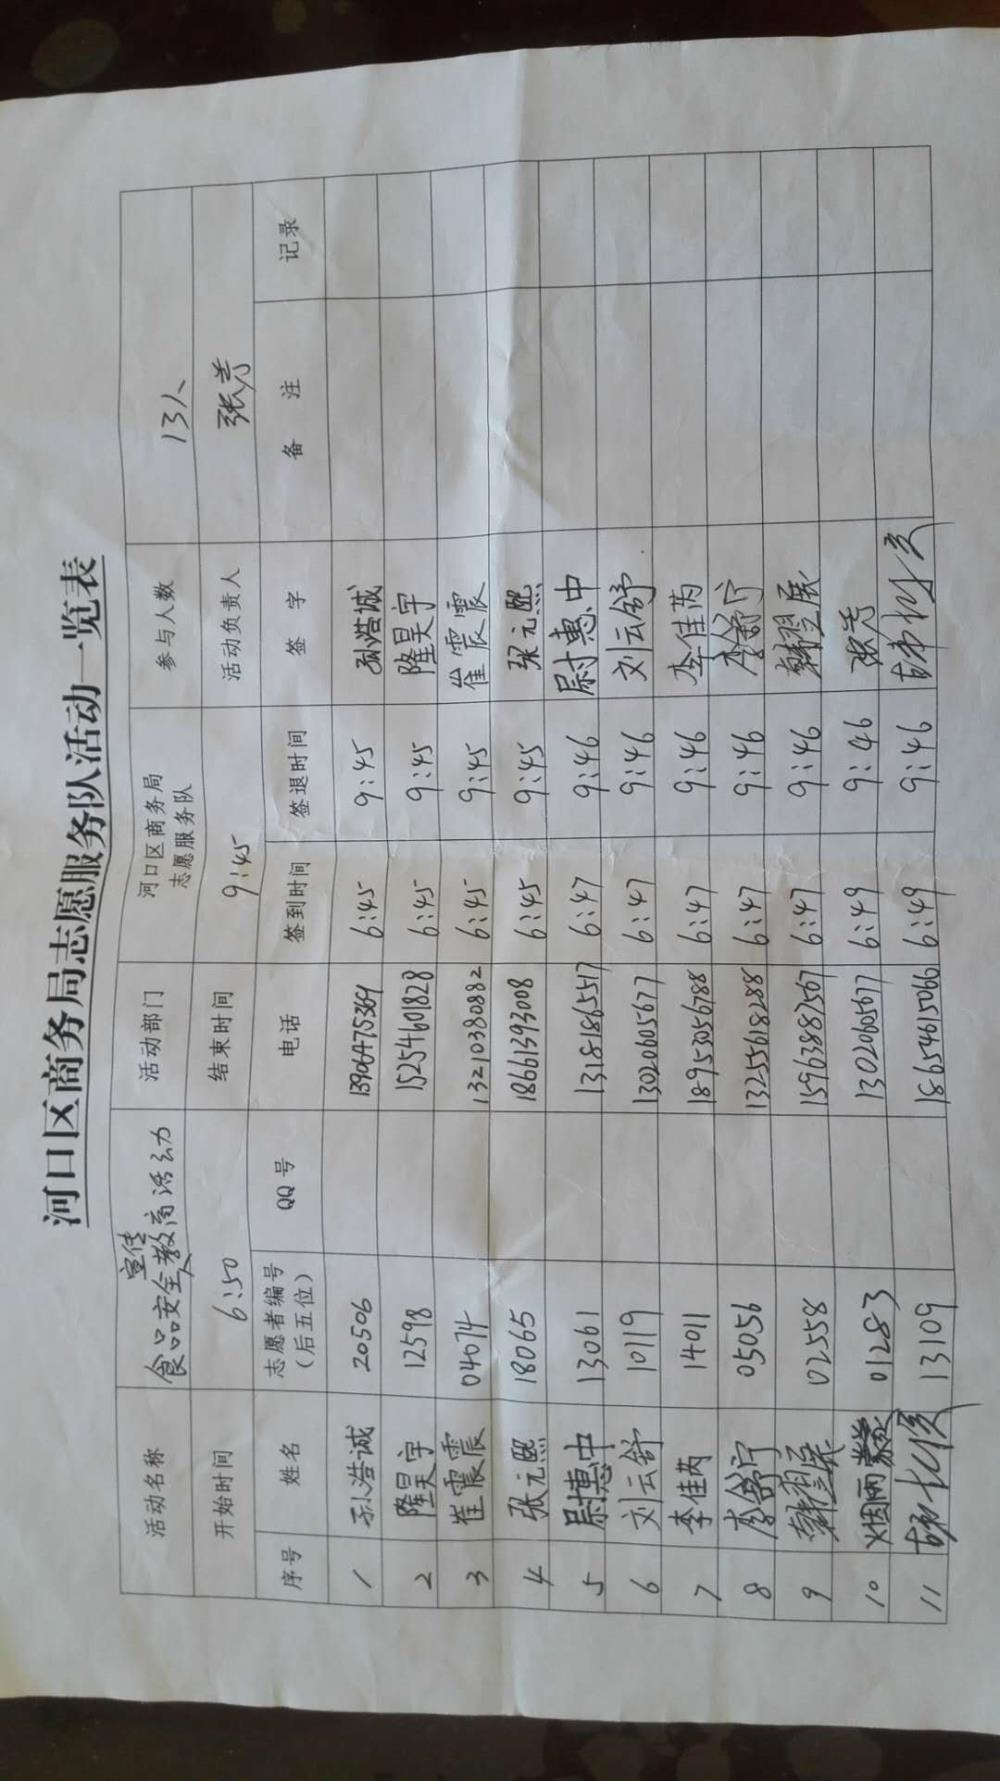 河口区商务局志愿服务队活动一览表
活动名称 食品安全宣传教育活动 活动部门 河口区商务局志愿服务队 参与人数 13人
开始时间 6:50 结束时间 9:45 活动负责人
序号 姓名 志愿者编号（后五位） QQ号 电话 签到时间 签退时间 签字 备注 记录
1 孙浩诚 20506 13906475369 6:45 9:45 孙浩诚
2 隆昊宇 12598 15254601828 6:45 9:45 隆昊宇
3 崔震震 04074 13210380882 6:45 9:45 崔震震
4 张元熙 18065 18661393008 6:45 9:45 张元熙
5 尉惠中 13061 13181865517 6:47 9:46 尉惠中
6 刘云舒 10119 13020605677 6:47 9:46 刘云舒
7 李佳芮 14011 18953056788 6:47 9:46 李佳芮
8 李舒宁 05056 13255618288 6:47 9:46 李舒宁
9 韩翌展 02558 15963887567 6:47 9:46 韩翌展
10 烟雨 01283 13020605677 6:49 9:46
11 13109 18654615066 6:49 9:46